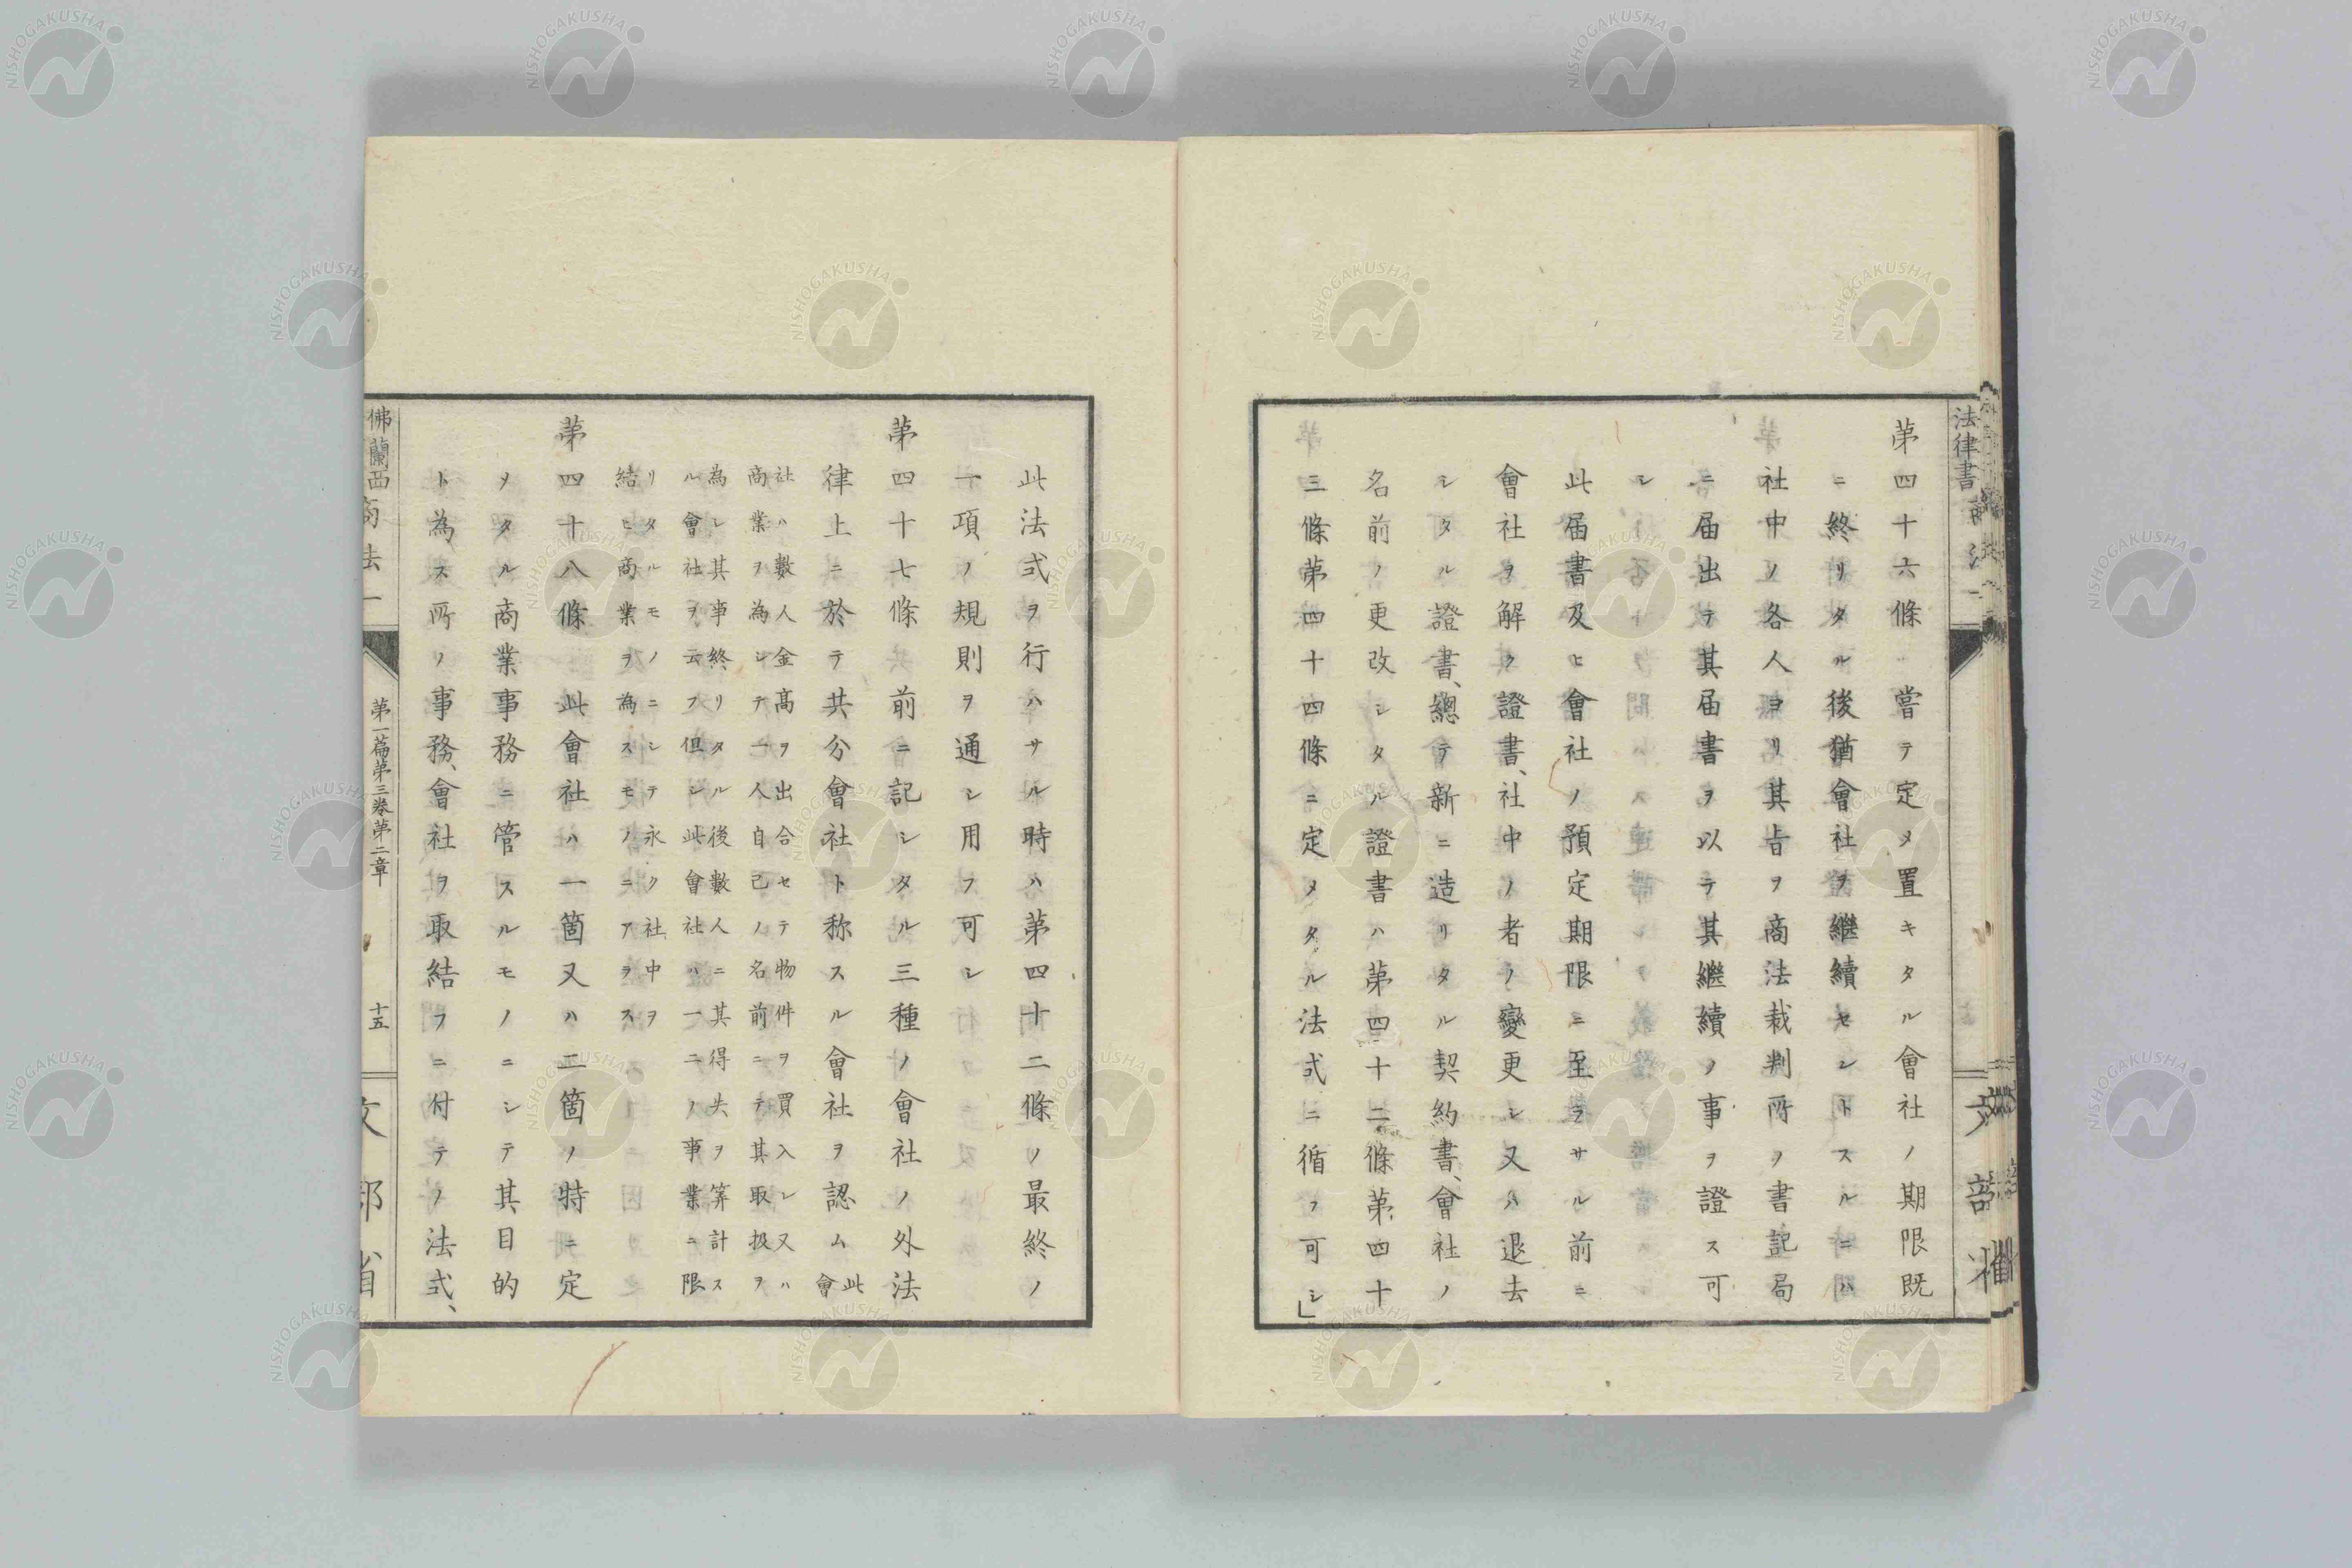 法律書
第四十六條 嘗テ定メ置キタル會社ノ期限既
ニ終リタル後猶會社ヲ繼續セントスルニハ
社中ノ各人ヨリ其旨ヲ商法裁判所ノ書記局
ニ届出テ其届書ヲ以テ其繼續ノ事ヲ證ス可
シ
此届書及ヒ會社ノ預定期限ニ至ラサル前ニ
會社ヲ解ク證書、社中ノ者ノ變更シ又ハ退去
シタル證書、總テ新ニ造リタル契約書、會社ノ
名前ノ更改シタル證書ハ第四十二條第四十
三條第四十四條ニ定メタル法式ニ循フ可シ」
此法式ヲ行ハサル時ハ第四十二條ノ最終ノ
一項ノ規則ヲ通シ用フ可シ
第四十七條 前ニ記シタル三種ノ會社ノ外法
律上ニ於テ共分會社ト称スル會社ヲ認ム此
會
社ハ數人金高ヲ出合セテ物件ヲ買入レ又ハ
商業ヲ為シテ一人自己ノ名前ニテ其取扱ヲ
為シ其事終リタル後數人ニ其得失ヲ筭計ス
ル會社ヲ云フ但シ此會社ハ一二ノ事業ニ限
リタルモノニシテ永ク社中ヲ
結ヒ商業ヲ為スモノニアラス
第四十八條 此會社ハ一箇又ハ二箇ノ特ニ定
メタル商業事務ニ管スルモノニシテ其目的
ト為ス所ノ事務、會社ヲ取結フニ付テノ法式、
佛蘭西商法一
第一篇第三巻第二章
十五
文部省
NISHOGAKUSHA